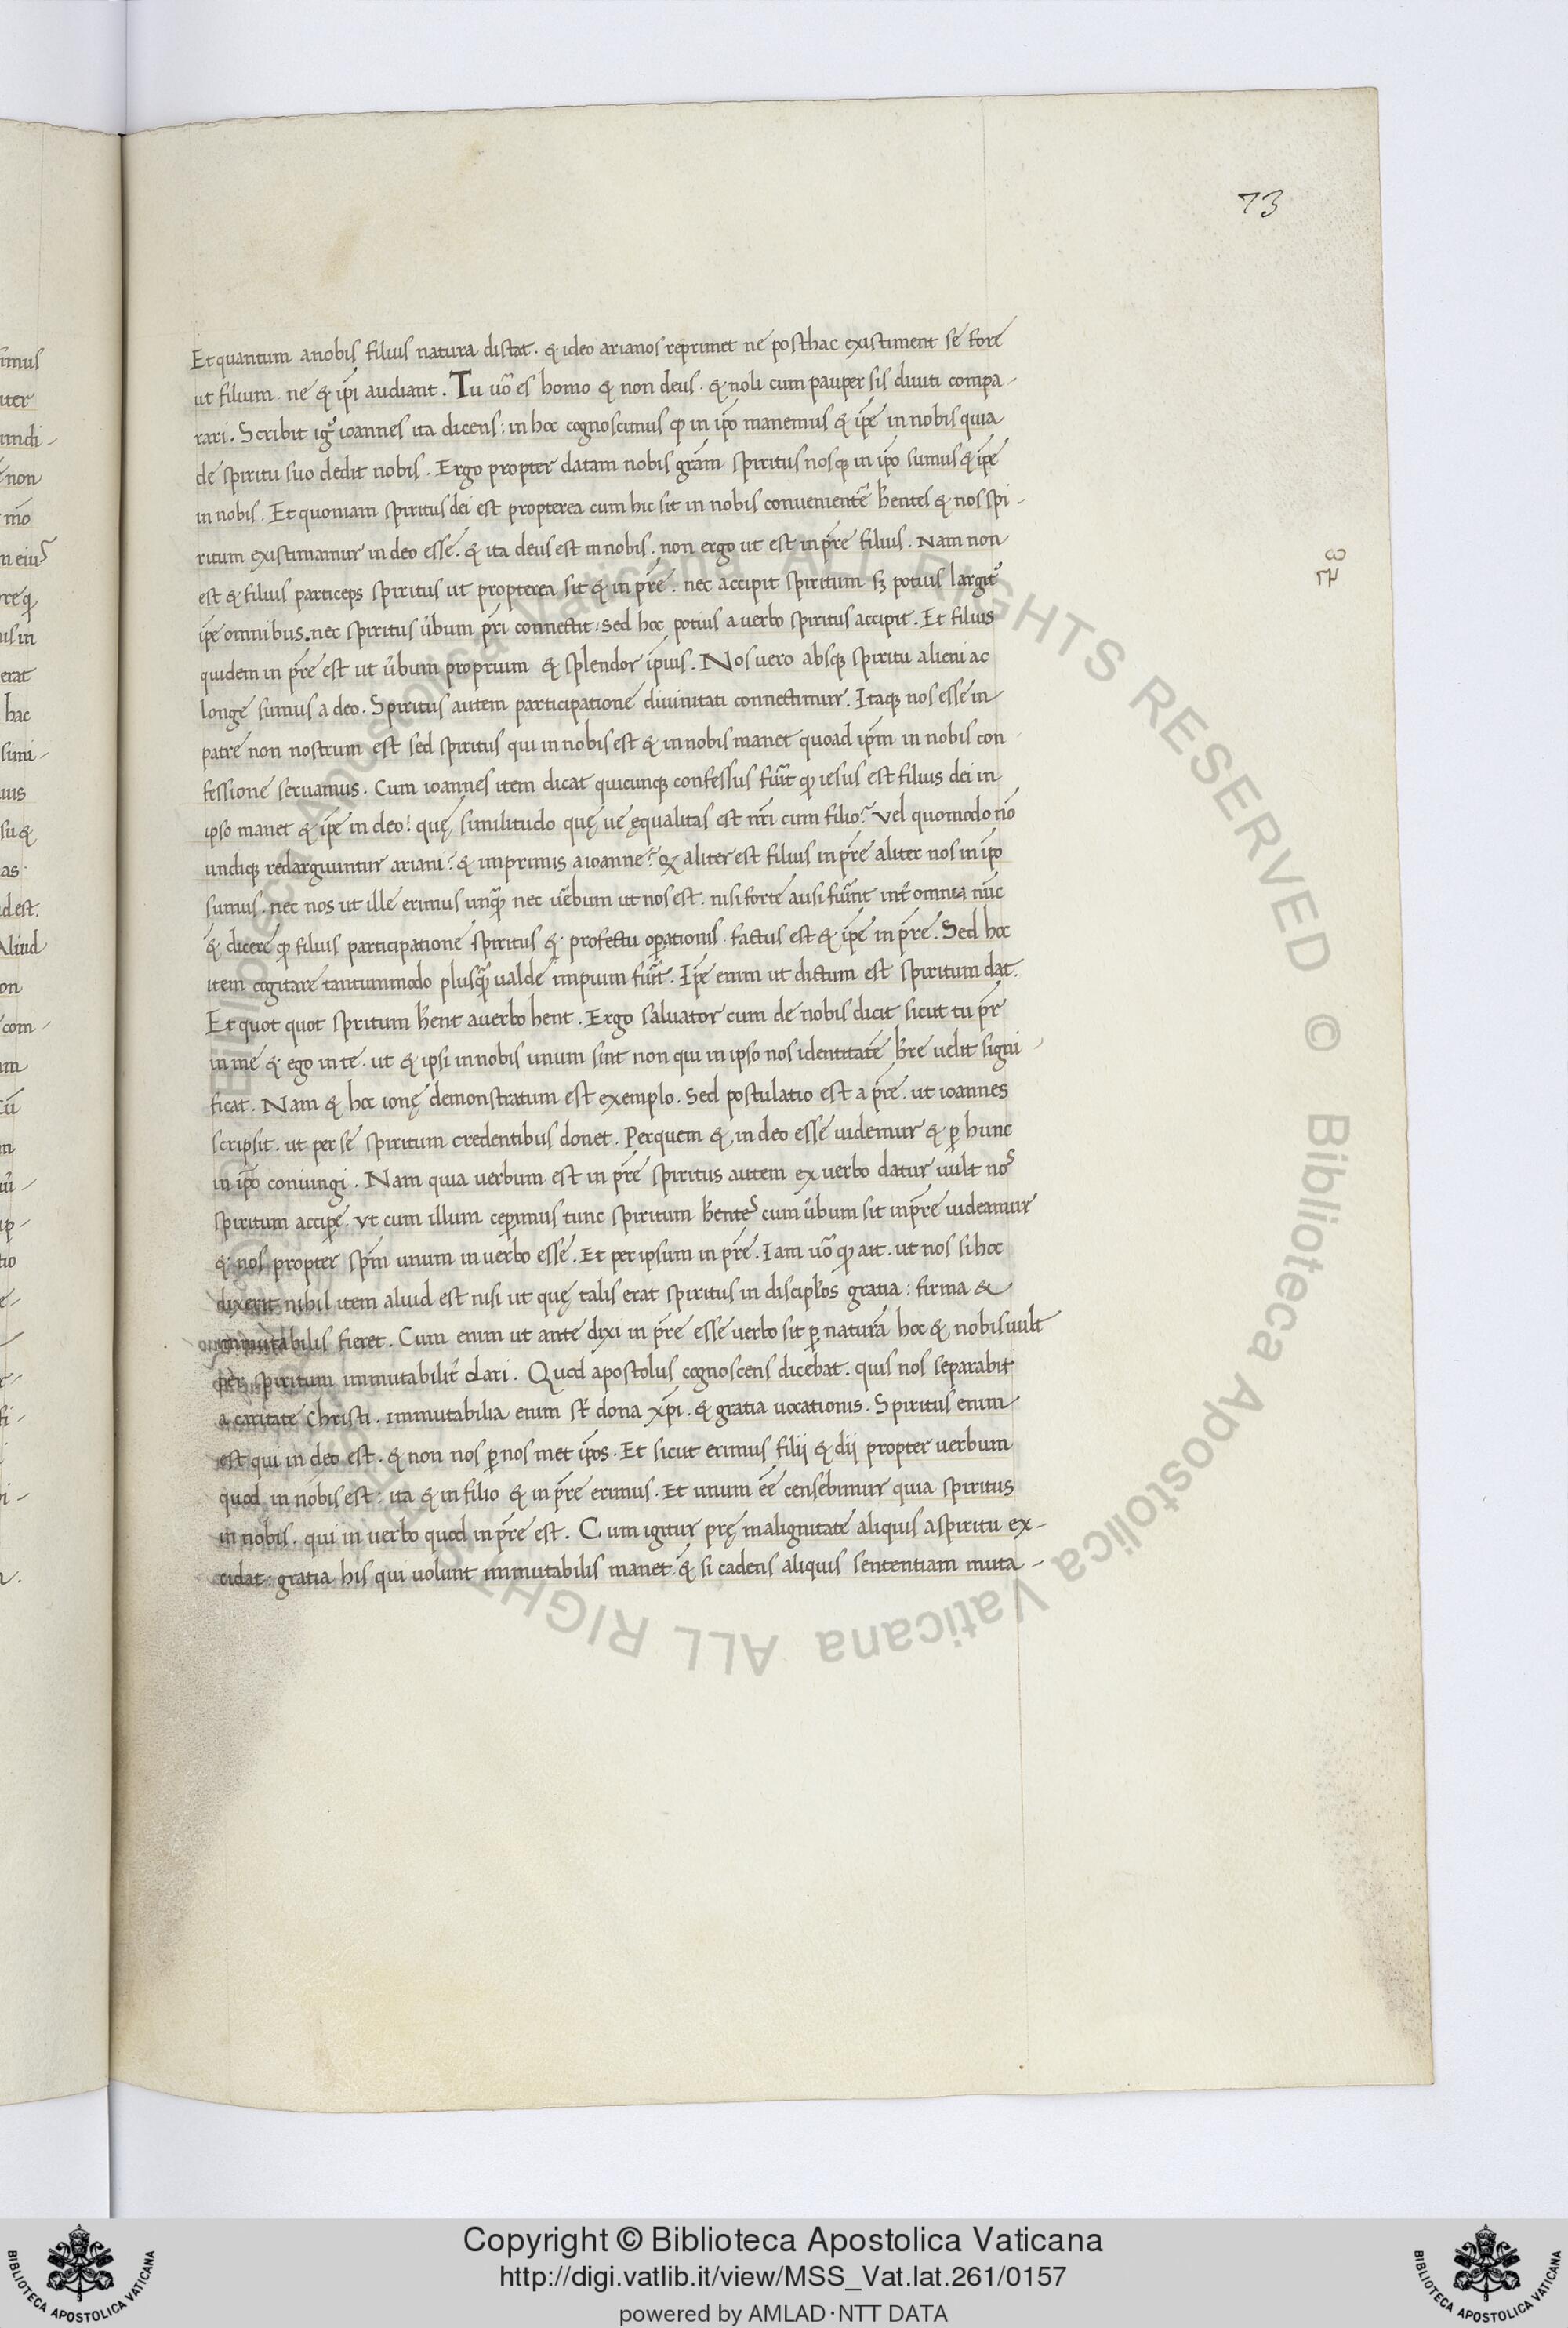 73
Et quantum a nobis filius natura distat. & ideo arianos reprimet ne posthac existiment se fore
ut filium. ne & ip̄i audiant. Tu uō es homo & non deus. & noli cum pauper sis diuiti compa-
rari. Scribit igͦ ioannes ita dicens: in hoc cognoscimus ꝙ in ip̄o manemus & ip̄e in nobis quia
de spiritu suo dedit nobis. Ergo propter datam nobis grām spiritus nosqꝫ in ip̄o sumus & ip̄e
in nobis. Et quoniam spiritus dei est propterea cum hic sit in nobis conuenientē hentes & nos spi-
ritum existimamur in deo esse. & ita deus est in nobis. non ergo ut est in pr̄e filius. Nam non
est & filius particeps spiritus ut propterea sit & in pr̄e. nec accipit spiritum sꝫ potius largit᷑
ip̄e omnibus. nec spiritus ūbum pr̄i connectit. sed hoc potius a uerbo spiritus accipit. Et filius
quidem in pr̄e est ut ūbum proprium & splendor ip̄ius. Nos uero absqꝫ spiritu alieni ac
longe sumus a deo. Spiritus autem participatione diuinitati connectimur. Itaqꝫ nos esse in
patre non nostrum est sed spiritus qui in nobis est & in nobis manet quoad ip̄m in nobis con
fessione seruamus. Cum ioannes item dicat quicunqꝫ confessus fuīt ꝙ iesus est filius dei in
ipso manet & ip̄e in deo! quę similitudo quę ue ęqualitas est nr̄i cum filio? vel quomodo nō
undiqꝫ redarguuntur ariani? & imprimis a ioanne? ꝙ aliter est filius in pr̄e aliter nos in ip̄o
sumus. nec nos ut ille erimus unqꝫ̄ nec uēbum ut nos est. nisi forte ausi fuīnt int̄ omnia nūc
& dicere ꝙ filius participatione spiritus & profectu oꝑationis factus est & ip̄e in pr̄e. Sed hoc
item cogitare tantummodo plusqꝫ̄ ualde impium fuīt. Ip̄e enim ut dictum est spiritum dat.
Et quot quot spritum hent a uerbo hent. Ergo saluator cum de nobis dicit sicut tu pr̄
in me & ego in te. ut & ipsi in nobis unum sint non qui in ipso nos identitatē hr̄e uelit signi-
ficat. Nam & hoc ionę demonstratum est exemplo. Sed postulatio est a pr̄e. ut ioannes
scripsit. ut per se spiritum credentibus donet. Per quem & in deo esse uidemur & ꝑ hunc
in ip̄o coniungi. Nam quia uerbum est in pr̄e spiritus autem ex verbo datur uult nos
spiritum acciꝑe. vt cum illum ceꝑimus tunc spiritum hentes cum ūbum sit in pr̄e uideamur
& nos propter spm̄ unum in uerbo esse. Et per ipsum in pr̄e. Iam uō ꝙ ait. ut nos si hoc
dixerit nihil item aliud est nisi ut quę talis erat spiritus in discipłos gratia: firma &
immutabilis fieret. Cum enim ut ante dixi in pr̄e esse uerbo sit ꝑ naturā hoc & nobis uult
per spiritum immutabilit̄ dari. Quod apostolus cognoscens dicebat. quis nos separabit
a caritate Christi. immutabilia enim st̄ dona xp̄i. & gratia uocationis. Spiritus enim
est qui in deo est. & non nos ꝑ nos met ip̄os. Et sicut erimus filij & dij propter uerbum
quod in nobis est: ita & in filio & in pr̄e erimus. Et unum eē censebimur quia spiritus
in nobis. qui in uerbo quod in pr̄e est. Cum igitur prę malignitate aliquis a spiritu ex-
cidat: gratia his qui uolunt immutabilis manet & si cadens aliquis sententiam muta-
Copyright © Biblioteca Apostolica Vaticana
http://digi.vatlib.it/view/MSS_Vat.lat.261/0157
powered by AMLAD·NTT DATA